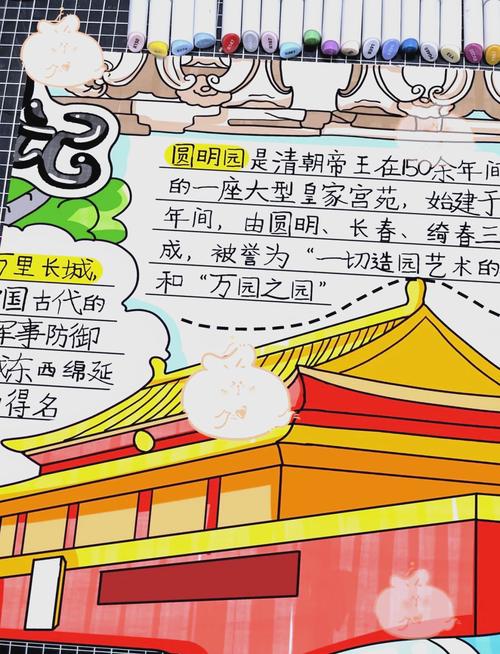 记
圆明园是清朝帝王在150余年间
的一座大型皇家宫苑，始建于
年间，由圆明、长春、绮春三
成，被誉为“一切造园艺术的
和“万园之园”
万里长城，
国古代的
军事防御
城东西绵延
得名